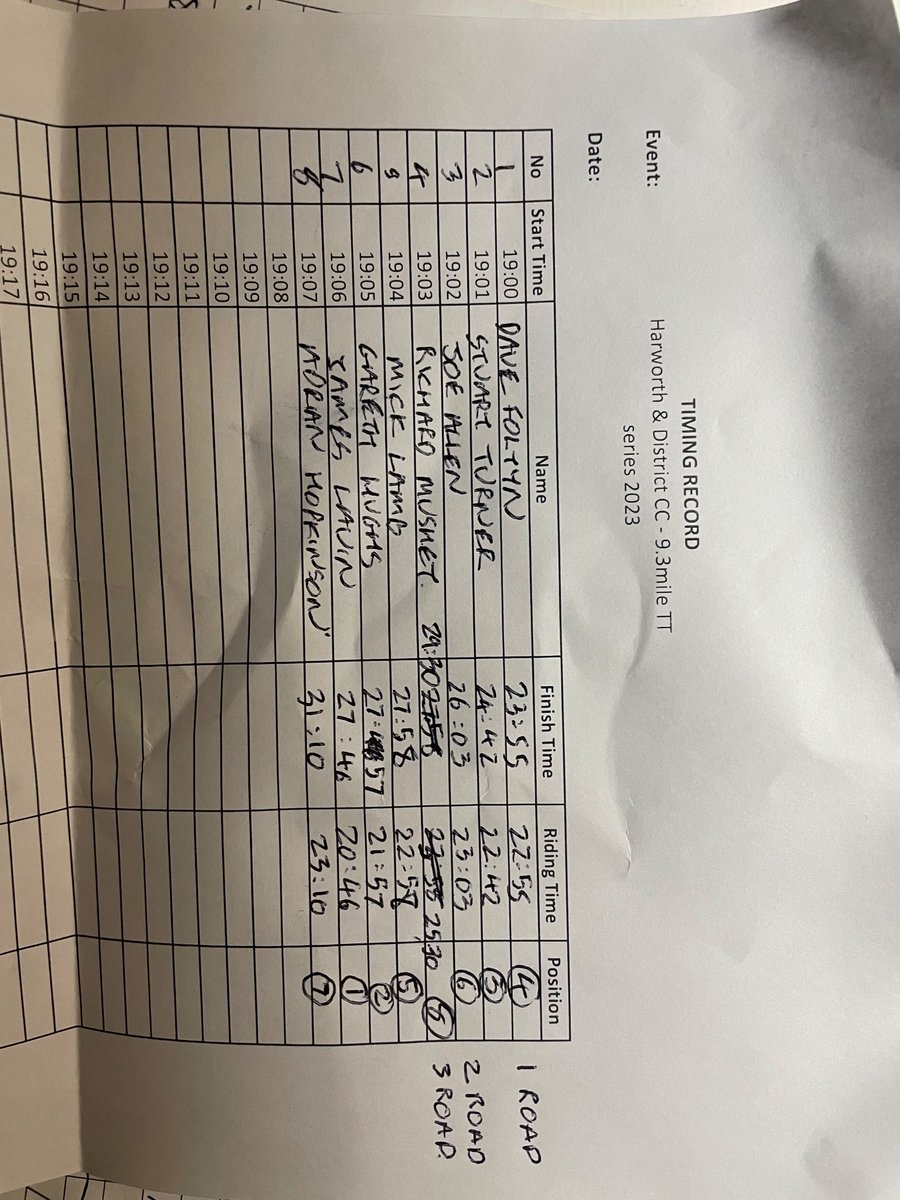 TIMING RECORD
Harworth & District CC - 9.3mile TT
series 2023
Event:
Date:
No Start Time Name Finish Time Riding Time Position
1 19:00 DAVE FOLTYN 23:55 22:55 4 1 ROAD
2 19:01 STUART TURNER 24:42 22:42 3
3 19:02 JOE ALLEN 26:03 23:03 6 2 ROAD
4 19:03 RICHARD MUSHET. 29:30 25:30 8 3 ROAD.
5 19:04 MICK LAMB 27:58 22:58 5
6 19:05 GARETH HUGHS 27:57 21:57 2
7 19:06 JAMES LAVIN 27:46 20:46 1
8 19:07 ADRIAN HOPKINSON 31:10 23:10 7
19:08
19:09
19:10
19:11
19:12
19:13
19:14
19:15
19:16
19:17